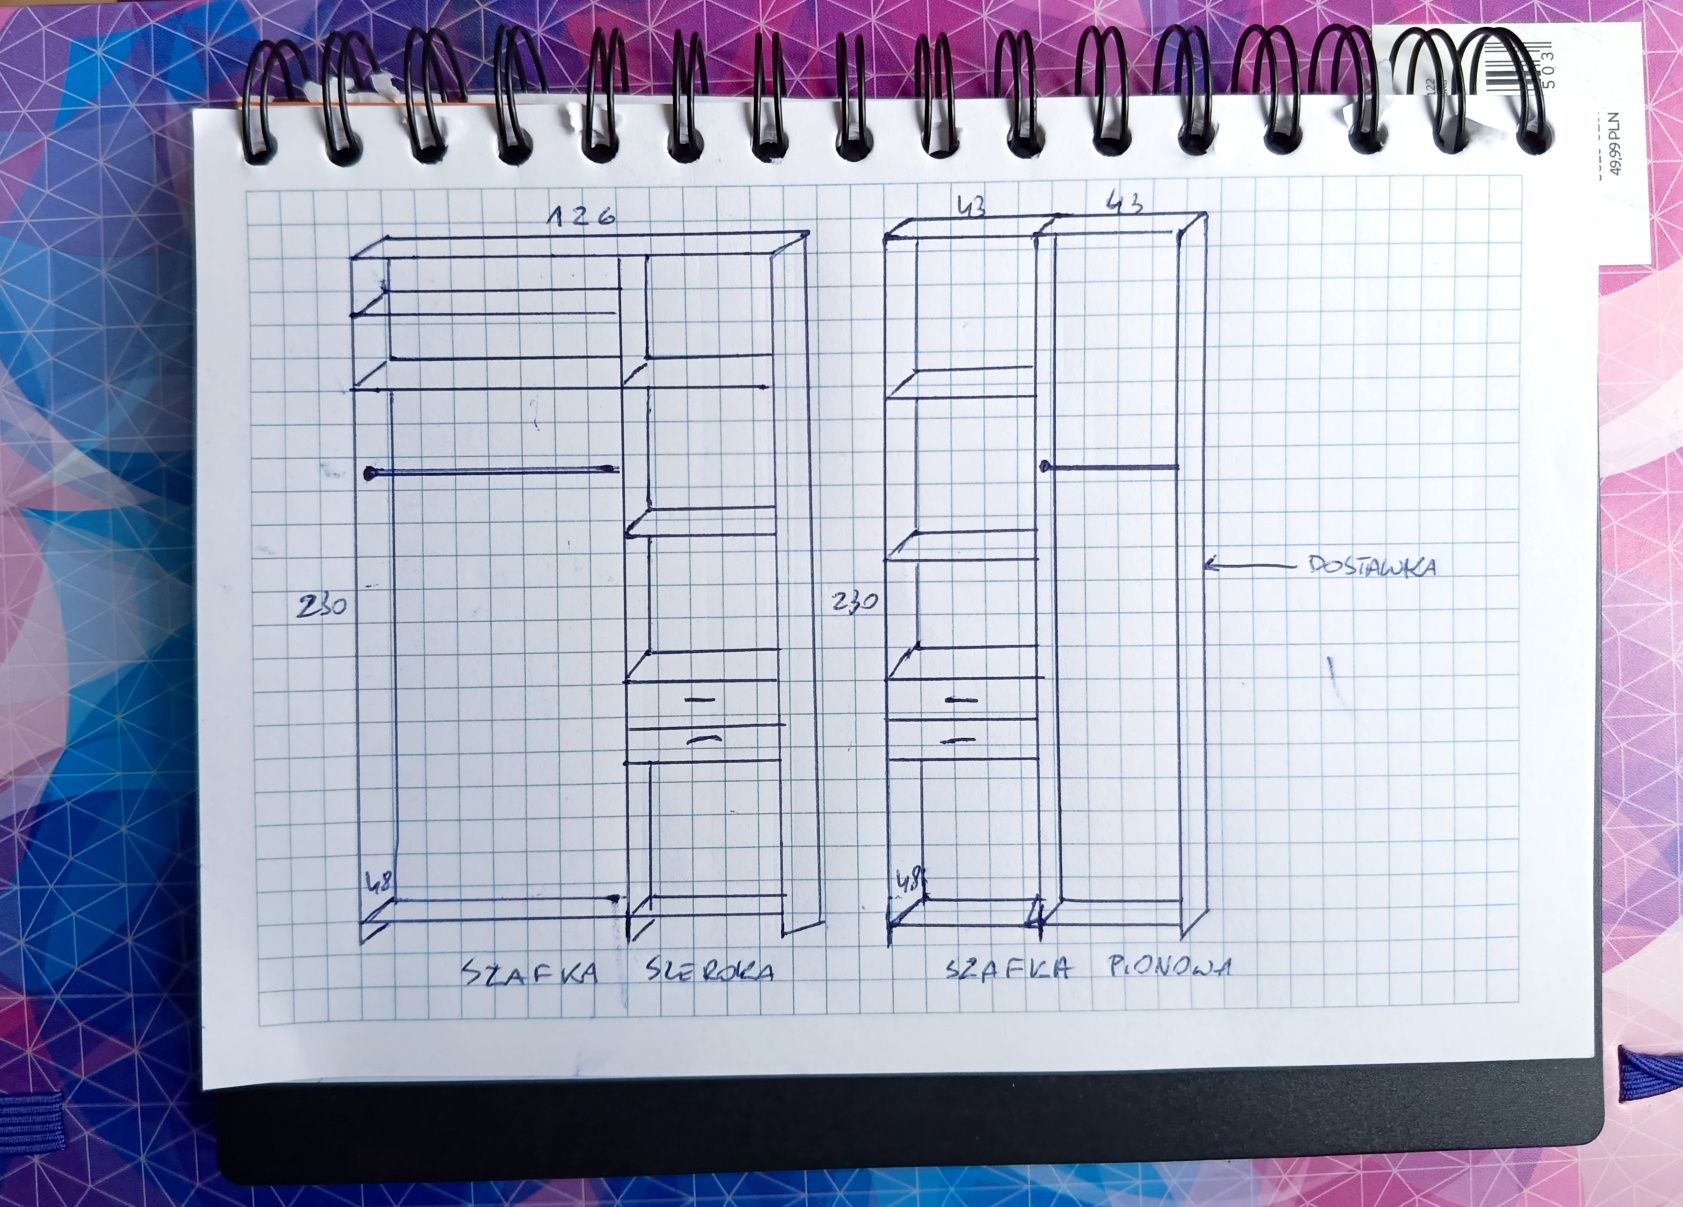 503
122
49,99PLN
126
43 43
230
230
DOSTAWKA
48
48
SZAFKA SZEROKA
SZAFKA PIONOWA